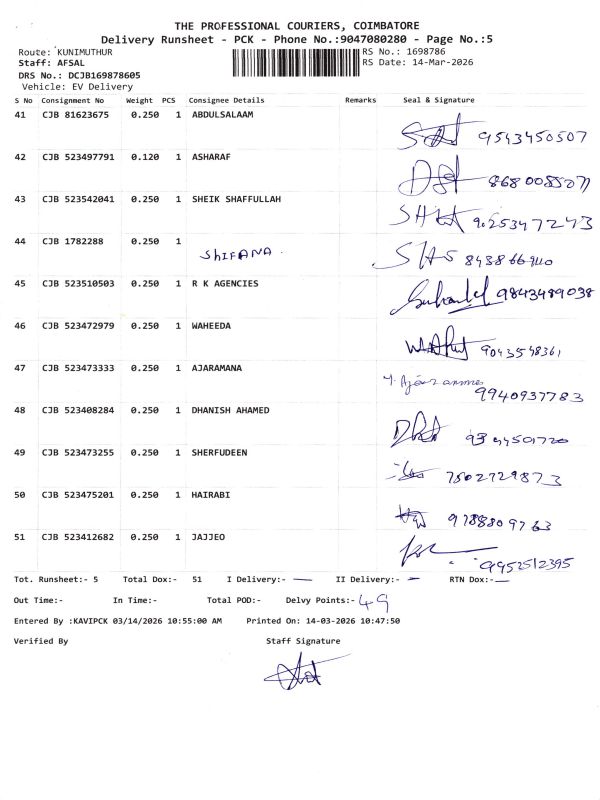 THE PROFESSIONAL COURIERS, COIMBATORE
Delivery Runsheet - PCK - Phone No.:9047080280 - Page No.:5
Route: KUNIMUTHUR RS No.: 1698786
Staff: AFSAL RS Date: 14-Mar-2026
DRS No.: DCJB169878605
Vehicle: EV Delivery
S No Consignment No Weight PCS Consignee Details Remarks Seal & Signature
41 CJB 81623675 0.250 1 ABDULSALAAM 9543450507
42 CJB 523497791 0.120 1 ASHARAF
43 CJB 523542041 0.250 1 SHEIK SHAFFULLAH 9025347243
44 CJB 1782288 0.250 1 SHIFANA
45 CJB 523510503 0.250 1 R K AGENCIES 9843489038
46 CJB 523472979 0.250 1 WAHEEDA 9043548361
47 CJB 523473333 0.250 1 AJARAMANA 9940937783
48 CJB 523408284 0.250 1 DHANISH AHAMED
49 CJB 523473255 0.250 1 SHERFUDEEN 7502729873
50 CJB 523475201 0.250 1 HAIRABI 9788809763
51 CJB 523412682 0.250 1 JAJJEO 9952512395
Tot. Runsheet:- 5 Total Dox:- 51 I Delivery:- — II Delivery:- — RTN Dox:- —
Out Time:- In Time:- Total POD:- Delvy Points:- 49
Entered By :KAVIPCK 03/14/2026 10:55:00 AM Printed On: 14-03-2026 10:47:50
Verified By Staff Signature